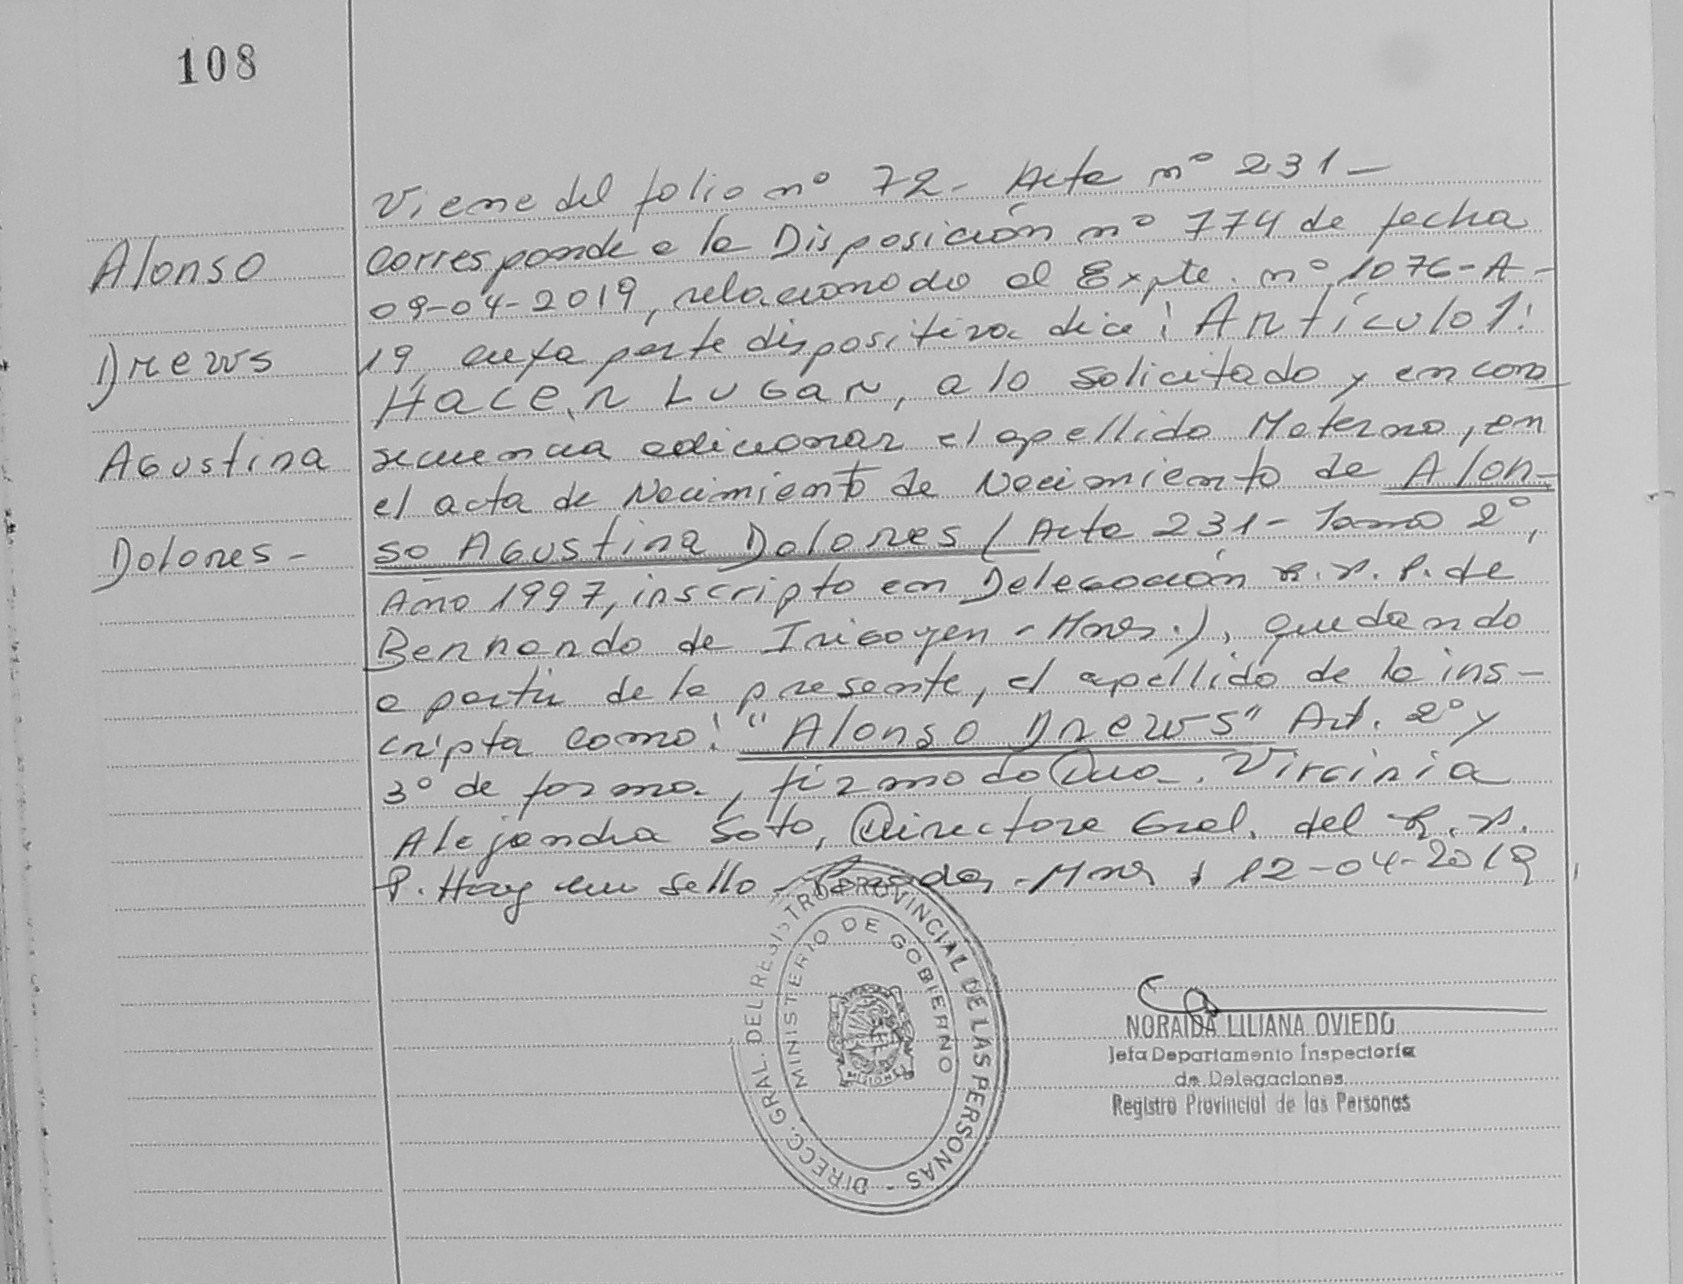 108
Alonso
Drews
Agustina
Dolores -
Viene del folio nº 72 - Acta nº 231 -
Corresponde a la Disposición nº 774 de fecha
09-04-2019, relacionado al Expte. nº 1076-A-
19, cuya parte dispositiva dice: Artículo 1:
HaceR LUGAR, a lo solicitado y en con
secuencia adicionar el apellido Materno, en
el acta de Nacimiento de Nacimiento de Alon-
so Agustina Dolores (Acta 231 - Tomo 2º,
Año 1997, inscripto en Delegación R.P.P. de
Bernardo de Irigoyen - Mnes.), quedando
a partir de la presente, el apellido de la ins-
cripta como: "Alonso Drews" Art. 2º y
3º de forma., firmado Dra. Virginia
Alejandra Soto, Directora Gral. del R.P.
P. Hay un sello - Posadas - Mnes, 12-04-2019
DIRECC. GRAL. DEL REGISTRO PROVINCIAL DE LAS PERSONAS -
MINISTERIO DE GOBIERNO
MISIONES
NORAIDA LILIANA OVIEDO
Jefa Departamento Inspectoría
de Delegaciones
Registro Provincial de las Personas